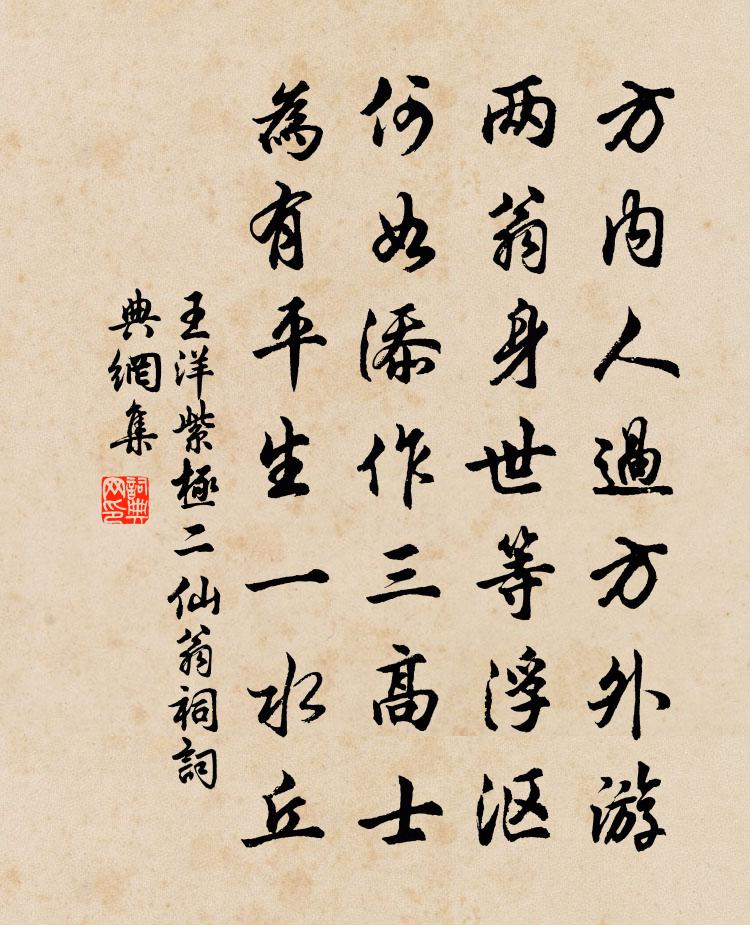 方内人過方外游
两翁身世等浮沤
何如添作三高士
為有平生一水丘
王洋紫極二仙翁祠詞
典網集
詞典网印